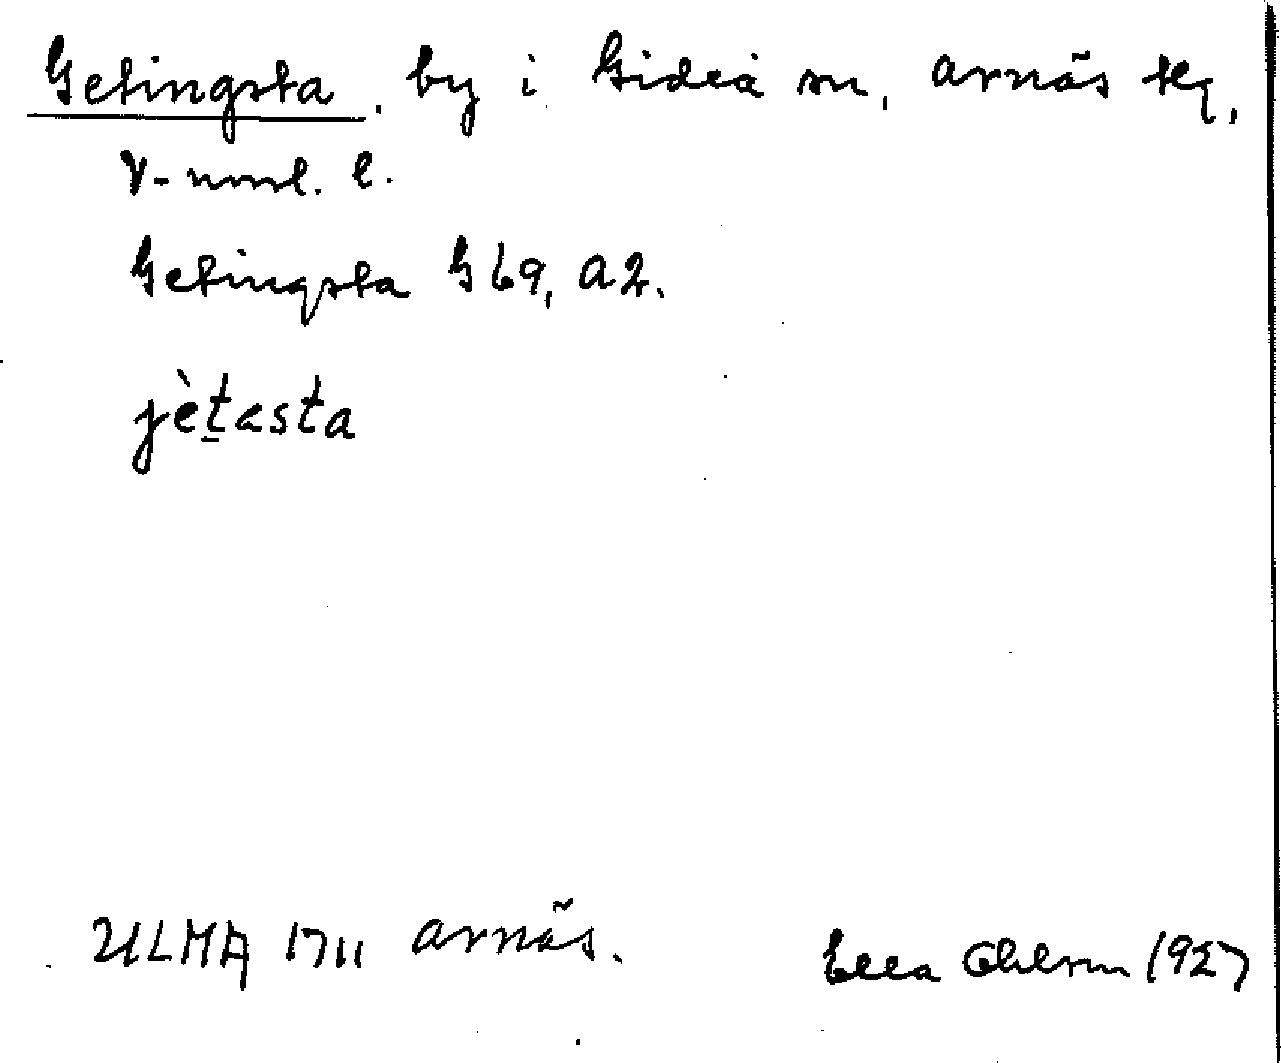 Getingsta, by i Gideå sn, Arnäs tg,
V-norrl. l.
Getingsta G 69, a2.
jètasta
ULMA 1711 Arnäs. Ella Ohlson 1927